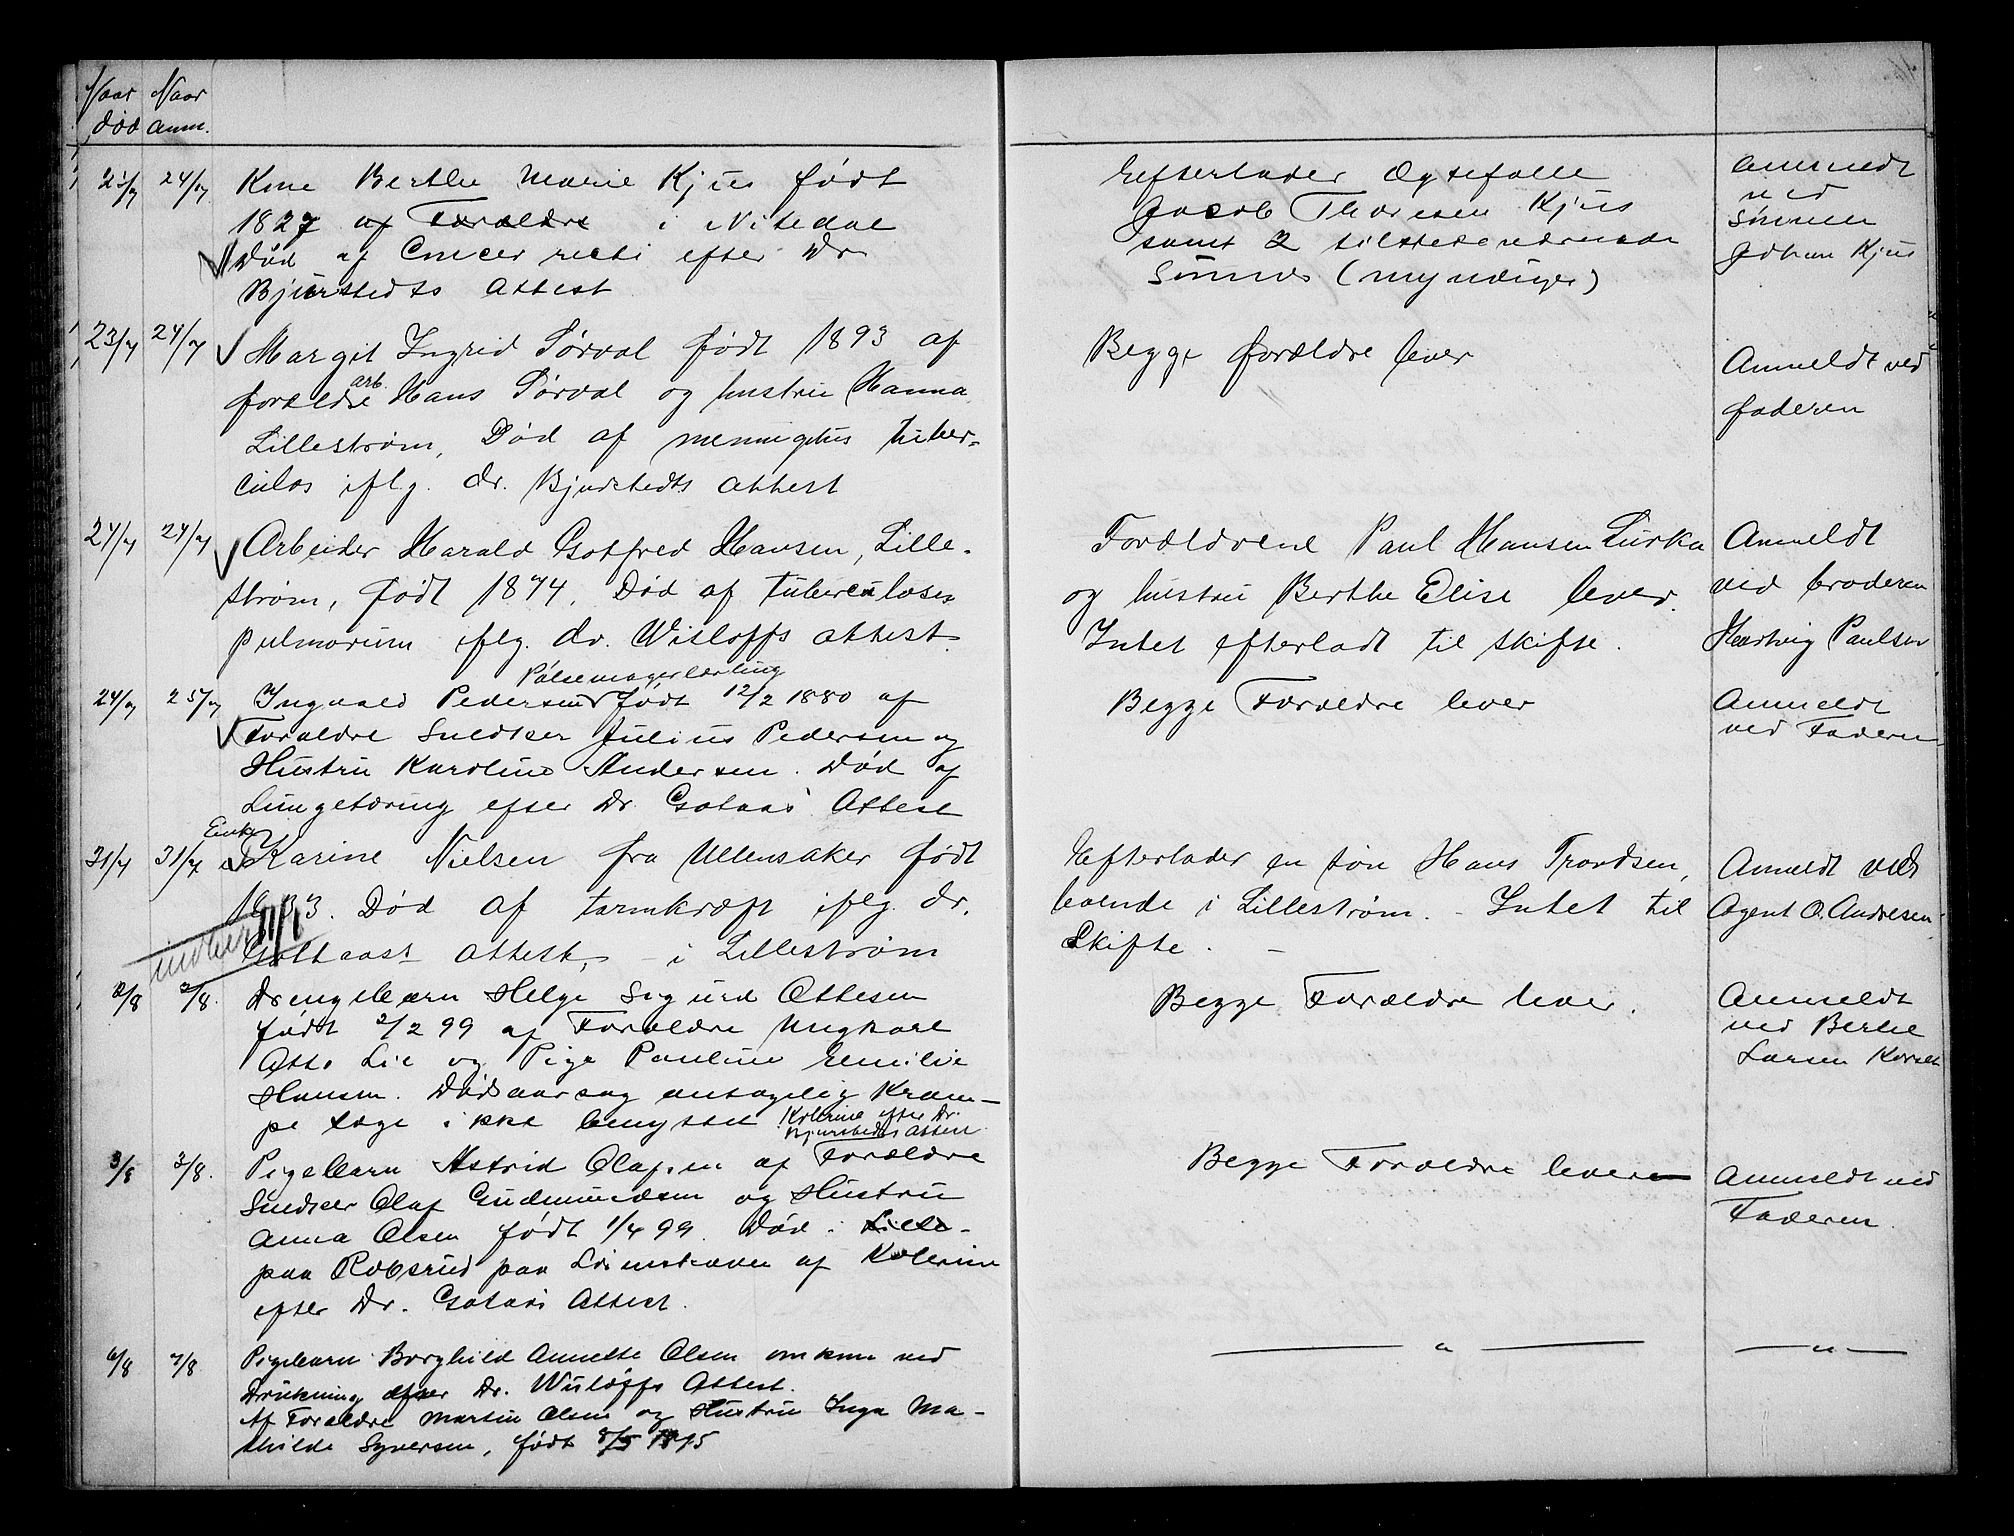 Naar Naar
død anm.
23/7 24/7 Kone Berthe Marie Kjus født
1827 af Forældre i Nitedal
Død af Cancer recti efter Dr
Bjurstedts Attest
Efterlader Ægtefælle
Jacob Thoresen Kjus
samt 2 tilstedeværende
Sønner (myndige)
Anmeldt
ved
Sønnen
Johan Kjus
23/7 24/7 Margit Ingrid Sørval født 1893 af
arb.
forældre Hans Sørval og hustru Hanna
Lillestrøm, Død af meningitus tuber-
culos iflg. dr. Bjurstedts attest
Begge forældre lever
Anmeldt ved
faderen
24/7 24/7 Arbeider Harald Gotfred Hansen, Lille-
strøm, født 1874. Død af tuberculoses
pulmorum iflg. dr. Wisløffs attest.
Forældrene Paul Hansen Lurka
og hustru Berthe Elise lever.
Intet efterladt til skifte.
Anmeldt
ved broderen
Hartvig Paulsen
Pølsemagerlærling
24/7 25/7 Ingvald Pedersen født 12/2 1880 af
Forældre Snedker Julius Pedersen og
Hustru Karoline Andersen. Død af
Lungetæring efter Dr. Gotaas' Attest
Begge Forældre lever
Anmeldt
ved Faderen
Enke
31/7 31/7 Karine Nielsen fra Ullensaker født
1833. Død af tarmkræft iflg. dr.
Gottaas' attest, - i Lillestrøm
indber.
Efterlader en søn Hans Trondsen,
boende i Lillestrøm. - Intet til
Skifte. -
Anmeldt ved
Agent O. Andresen
2/8 2/8. Drengebarn Helge Sigurd Ottesen
født 2/2 99 af Forældre Ungkarl
Otto Lie og Pige Pauline Emilie
Hansen. Dødsaarsag antagelig Kram-
pe Læge ikke benyttet Kolerine efter Dr.
Bjurstedts Attest
Begge Forældre lever.
Anmeldt
ved Berthe
Larsen
3/8 3/8. Pigebarn Astrid Olafsen af Forældre
Snedker Olaf Gudmundsen og Hustru
Anna Olsen født 1/4 99. Død i Lille-
paa Robsrud paa af Kolerine
efter Dr. Gotaas Attest.
Begge Forældre lever
Anmeldt ved
Faderen
6/8 7/8 Pigebarn Borghild Annette Olsen omkom ved
Drukning efter Dr. Wisløffs Attest.
Af Forældre Martin Olsen og Hustru Inga Ma-
thilde Syversen, født 8/5 1895
— " —
— " —